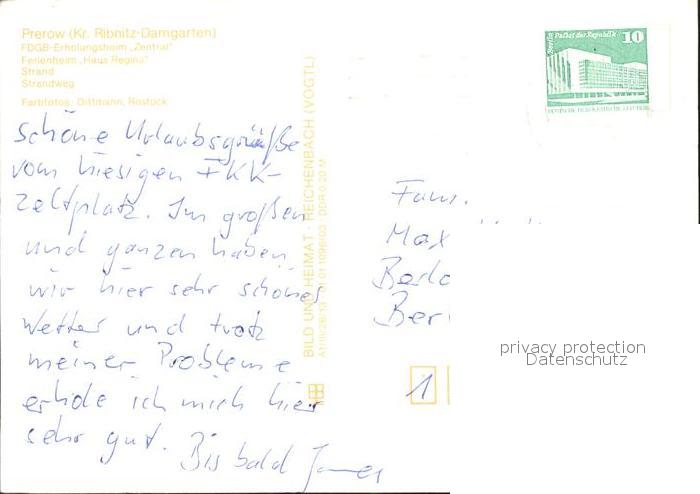 Prerow (Kr. Ribnitz-Damgarten)
FDGB-Erholungsheim „Zentral"
Ferienheim „Haus Regina"
Strand
Strandweg
Farbfotos: Dittmann, Rostock
Schöne Urlaubsgrüße
vom hiesigen FKK-
Zeltplatz. Im großen
und ganzen haben
wir hier sehr schönes
Wetter und trotz
meiner Probleme
erhole ich mich hier
sehr gut. Bis bald
BILD UND HEIMAT · REICHENBACH (VOGTL)
DDR 0,20 M
Berlin Palast der Republik
10
DEUTSCHE DEMOKRATISCHE REPUBLIK
Fam.
Max
Ber
1
privacy protection
Datenschutz